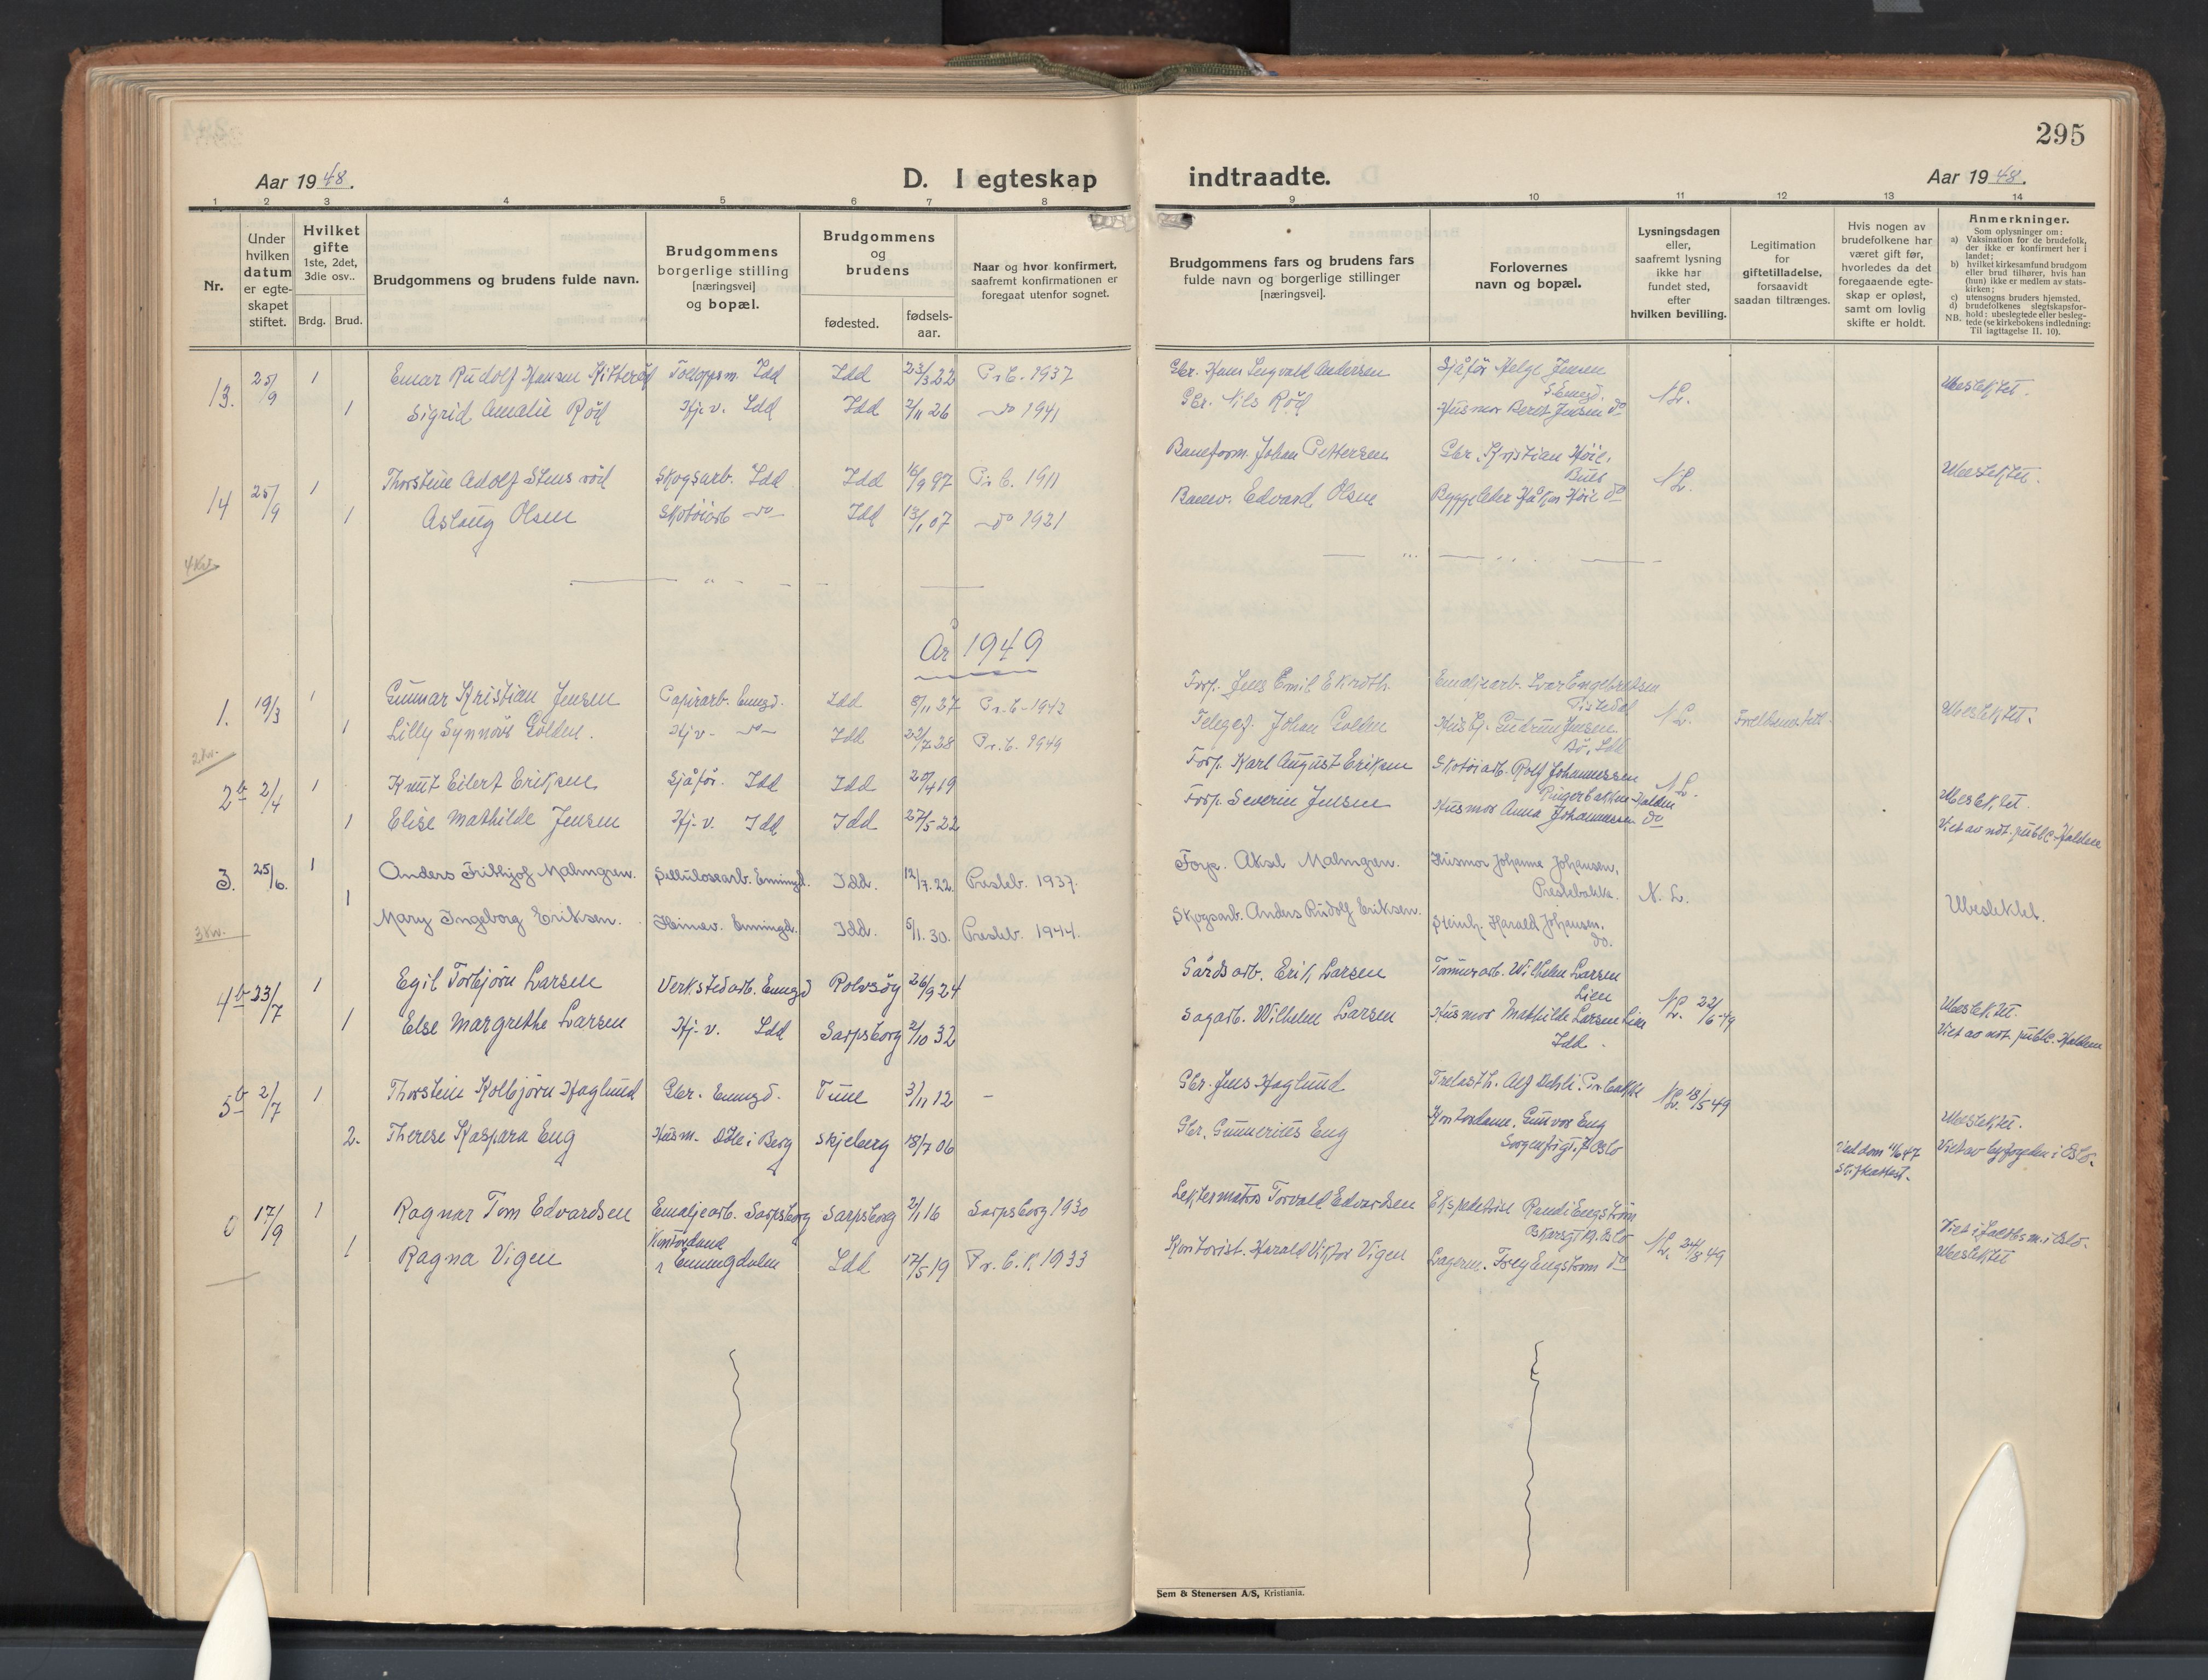 295
Aar 1948.
D. I egteskap
indtraadte.
Aar 1948.
1 2 3 4 5 6 7 8 9 10 11 12 13 14
Nr.
Under hvilken datum er egteskapet stiftet.
Hvilket gifte 1ste, 2det, 3die osv..
Brdg. Brud.
Brudgommens og brudens fulde navn.
Brudgommens borgerlige stilling [næringsvei] og bopæl.
Brudgommens og brudens
fødested. fødselsaar.
Naar og hvor konfirmert, saafremt konfirmationen er foregaat utenfor sognet.
Brudgommens fars og brudens fars fulde navn og borgerlige stillinger [næringsvei].
Forlovernes navn og bopæl.
Lysningsdagen eller, saafremt lysning ikke har fundet sted, efter hvilken bevilling.
Legitimation for giftetilladelse, forsaavidt saadan tiltrænges.
Hvis nogen av brudefolkene har været gift før, hvorledes da det foregaaende egteskap er opløst, samt om lovlig skifte er holdt.
Anmerkninger.
Som oplysninger om:
a) Vaksination for de brudefolk, der ikke er konfirmert her i landet;
b) hvilket kirkesamfund brudgom eller brud tilhører, hvis han (hun) ikke er medlem av statskirken;
c) utensogns bruders hjemsted.
d) brudefolkenes slegtskapsforhold: ubeslegtede eller beslegtede (se kirkebokens indledning:
NB. Til iagttagelse II. 10).
13. 25/9 1 Einar Rudolf Hansen Idd Idd 23/3 22 Pr.b. 1937 Gbr. Hans Andersen Sjåfør Helge Jensen N.L. Ubeslektet.
1 Sigrid Amalie Röd Hj.v. Idd Idd 2/11 26 do 1941 Gbr. Nils Röd Husmor Berit Jensen do
14 25/9 1 Thorstein Adolf Stensröd Skogsarb. Idd Idd 16/9 97 Pr.b. 1911 Baneform. Johan Pettersen Gbr. Kristian N.L. Ubeslektet.
1 Aslaug Olsen Skotöiarb do Idd 13/1 07 do 1921 Edvard Olsen Byggeleder Håkon do
4 Kv.
År 1949
1. 19/3 1 Gunnar Kristian Jensen Papirarb. Enngd. Idd 8/11 27 Pr.b. 1942 Forp. Jens Emil Ekroth Emaljearb. Ivar Engebretsen Tistedal N.L. Ubeslektet.
1 Lilly Synnöve Golden. Hj.v. do Idd 22/7 28 Pr.b. 1949 Johan Golden Gudrun Jensen Bö, Idd
2 Kv.
2b 2/4 1 Knut Eilert Eriksen Sjåför. Idd Idd 20/4 19 Forp. Karl August Eriksen Skotöiarb. Rolf Johannessen Halden N.L. Ubeslektet.
1 Elise Mathilde Jensen Hj.v. Idd Idd 27/5 22 Forp. Severin Jensen Husmor Anna Johannessen do Viet av not. publ. Halden
3. 25/6. 1 Anders Frithjof Malmgren. Cellulosearb. Enningd. Idd. 12/7.22. Presteb. 1937. Forp. Aksel Malmgren. Husmor Johanne Johansen, Prestebakke. N.L. Ubeslektet.
1 Mary Ingeborg Eriksen. Heimev. Enningd. Idd. 5/1.30. Presteb. 1944. Skogsarb. Anders Rudolf Eriksen. Steinh. Harald Johansen. do.
3 Kv.
4b 23/7 1 Egil Torbjörn Larsen Verkstedarb. Enngd Rolvsöy 26/9 24 Gårdsarb. Erik Larsen Tömmerarb. Wilhelm Larsen Lien N.L. 22/6-49 Ubeslektet.
1 Else Margrethe Larsen Hj.v. Idd Sarpsborg 2/10 32 Sagarb. Wilhelm Larsen Husmor Mathilde Larsen Lien Idd. Viet av not. publ. Halden
5b 2/7 1 Thorstein Kolbjörn Haglund Gbr. Enngd. Tune 3/11 12 - Gbr. Jens Haglund Trelasth. Alf Dehli. Pr.bakke N.L. 18/5 49 Ubeslektet.
2. Therese Kaspara Eng Husm. i Berg Skjeberg 18/7 06 Gbr. Gunnerius Eng Kontordame. Gunvor Eng Sorgenfrigt. Oslo Ved dom 11/6 47 Skifteattest. Viet av byfogden i Oslo.
17/9 1 Ragnar Tom Edvardsen Emaljearb. Sarpsborg Sarpsborg 2/1 16 Sarpsborg 1930 Torvald Edvardsen Randi Engström Oslo N.L. 24/8 49 Viet i
1 Ragna Vigen Kontordame Enningdalen Idd 17/5 19 Pr.b.k. 1933 Kontorist. Harald Viktor Vigen Lagerm. Frey Engström do Ubeslektet
Sem & Stenersen A/S, Kristiania.